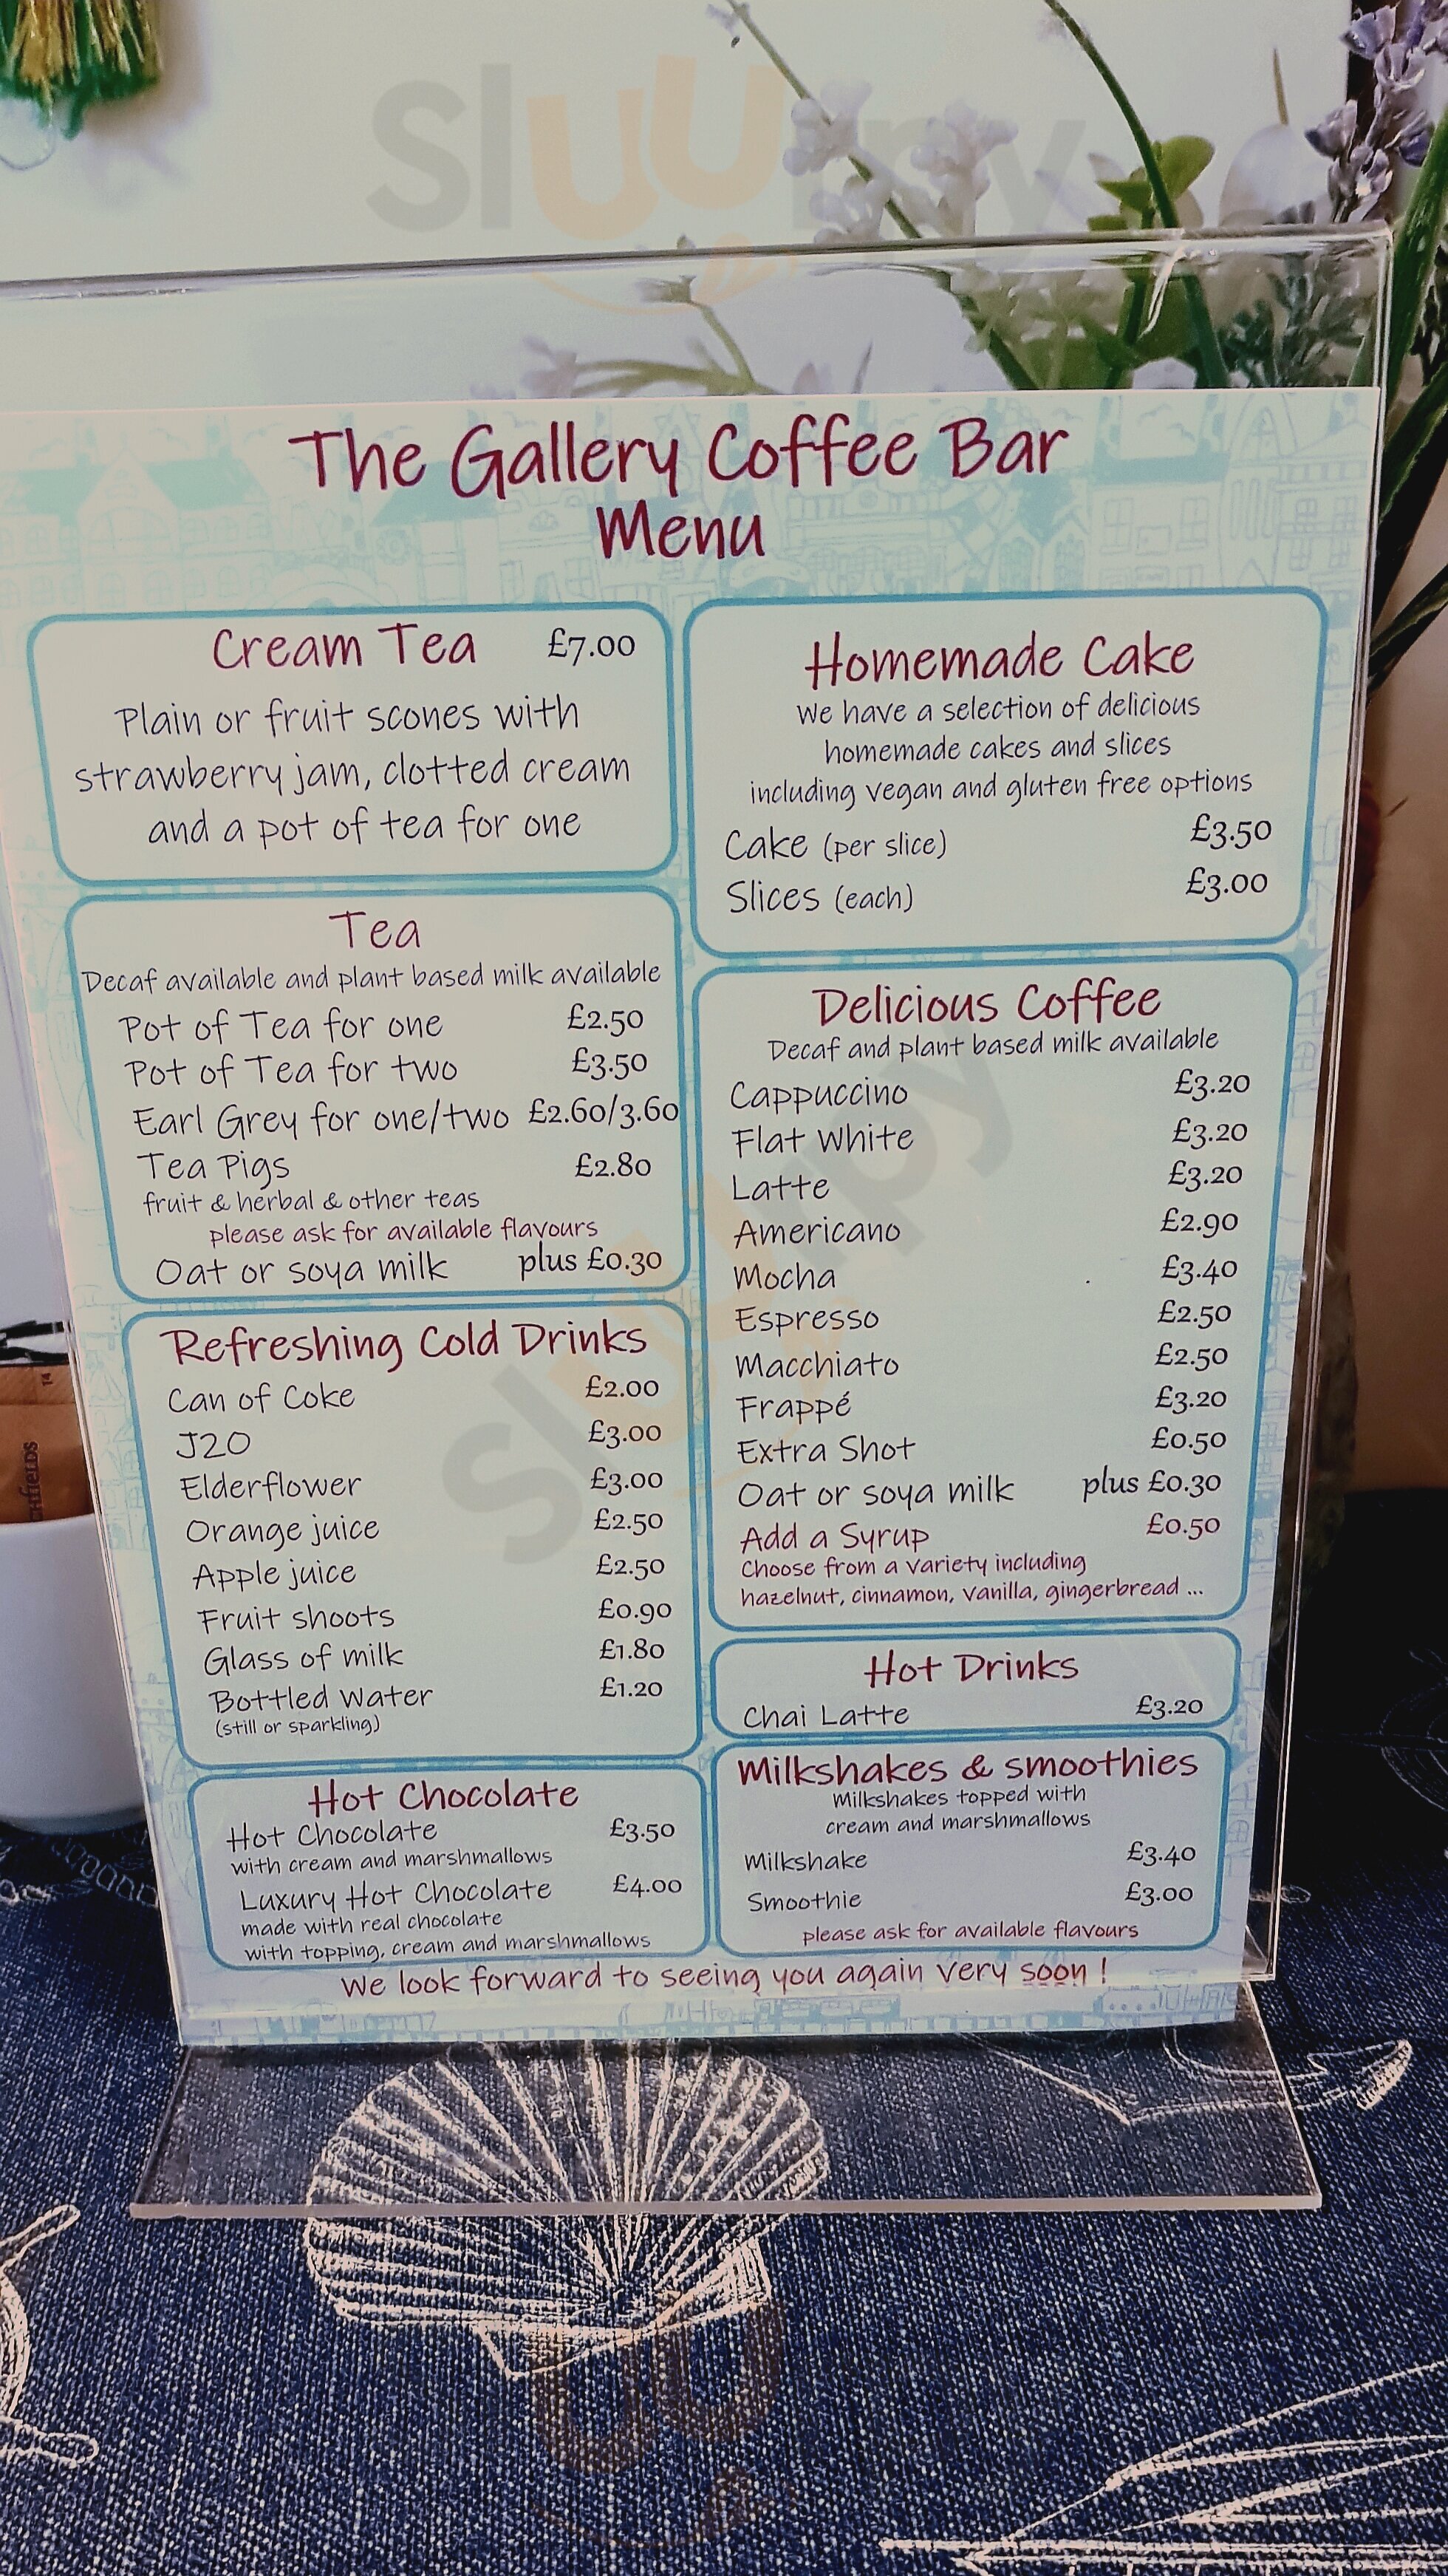 Sluurpy
The Gallery Coffee Bar
Menu
Cream Tea £7.00
Plain or fruit scones with
strawberry jam, clotted cream
and a pot of tea for one
Tea
Decaf available and plant based milk available
Pot of Tea for one £2.50
Pot of Tea for two £3.50
Earl Grey for one/two £2.60/3.60
Tea Pigs £2.80
fruit & herbal & other teas
please ask for available flavours
Oat or soya milk plus £0.30
Refreshing Cold Drinks
Can of Coke £2.00
J2O £3.00
Elderflower £3.00
Orange juice £2.50
Apple juice £2.50
Fruit shoots £0.90
Glass of milk £1.80
Bottled Water £1.20
(still or sparkling)
Hot Chocolate
Hot Chocolate £3.50
with cream and marshmallows
Luxury Hot Chocolate £4.00
made with real chocolate
with topping, cream and marshmallows
Homemade Cake
We have a selection of delicious
homemade cakes and slices
including vegan and gluten free options
Cake (per slice) £3.50
Slices (each) £3.00
Delicious Coffee
Decaf and plant based milk available
Cappuccino £3.20
Flat White £3.20
Latte £3.20
Americano £2.90
Mocha £3.40
Espresso £2.50
Macchiato £2.50
Frappé £3.20
Extra Shot £0.50
Oat or soya milk plus £0.30
Add a Syrup £0.50
Choose from a variety including
hazelnut, cinnamon, vanilla, gingerbread ...
Hot Drinks
Chai Latte £3.20
Milkshakes & smoothies
Milkshakes topped with
cream and marshmallows
Milkshake £3.40
Smoothie £3.00
please ask for available flavours
We look forward to seeing you again very soon !
Sluurpy